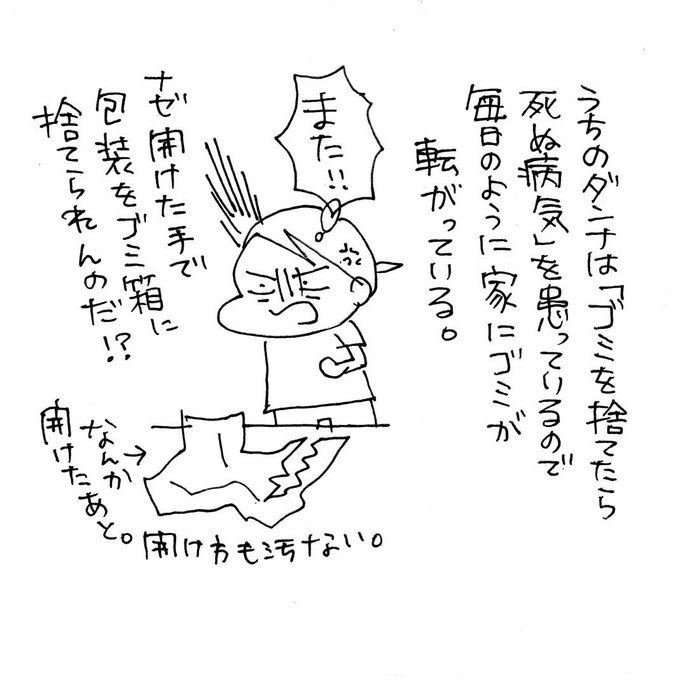 うちのダンナは「ゴミを捨てたら
死ぬ病気」を患っているので
毎日のように家にゴミが
転がっている。
また!!
ナゼ開けた手で
包装をゴミ箱に
捨てられんのだ!?
なんか
開けたあと。
開け方も汚ない。